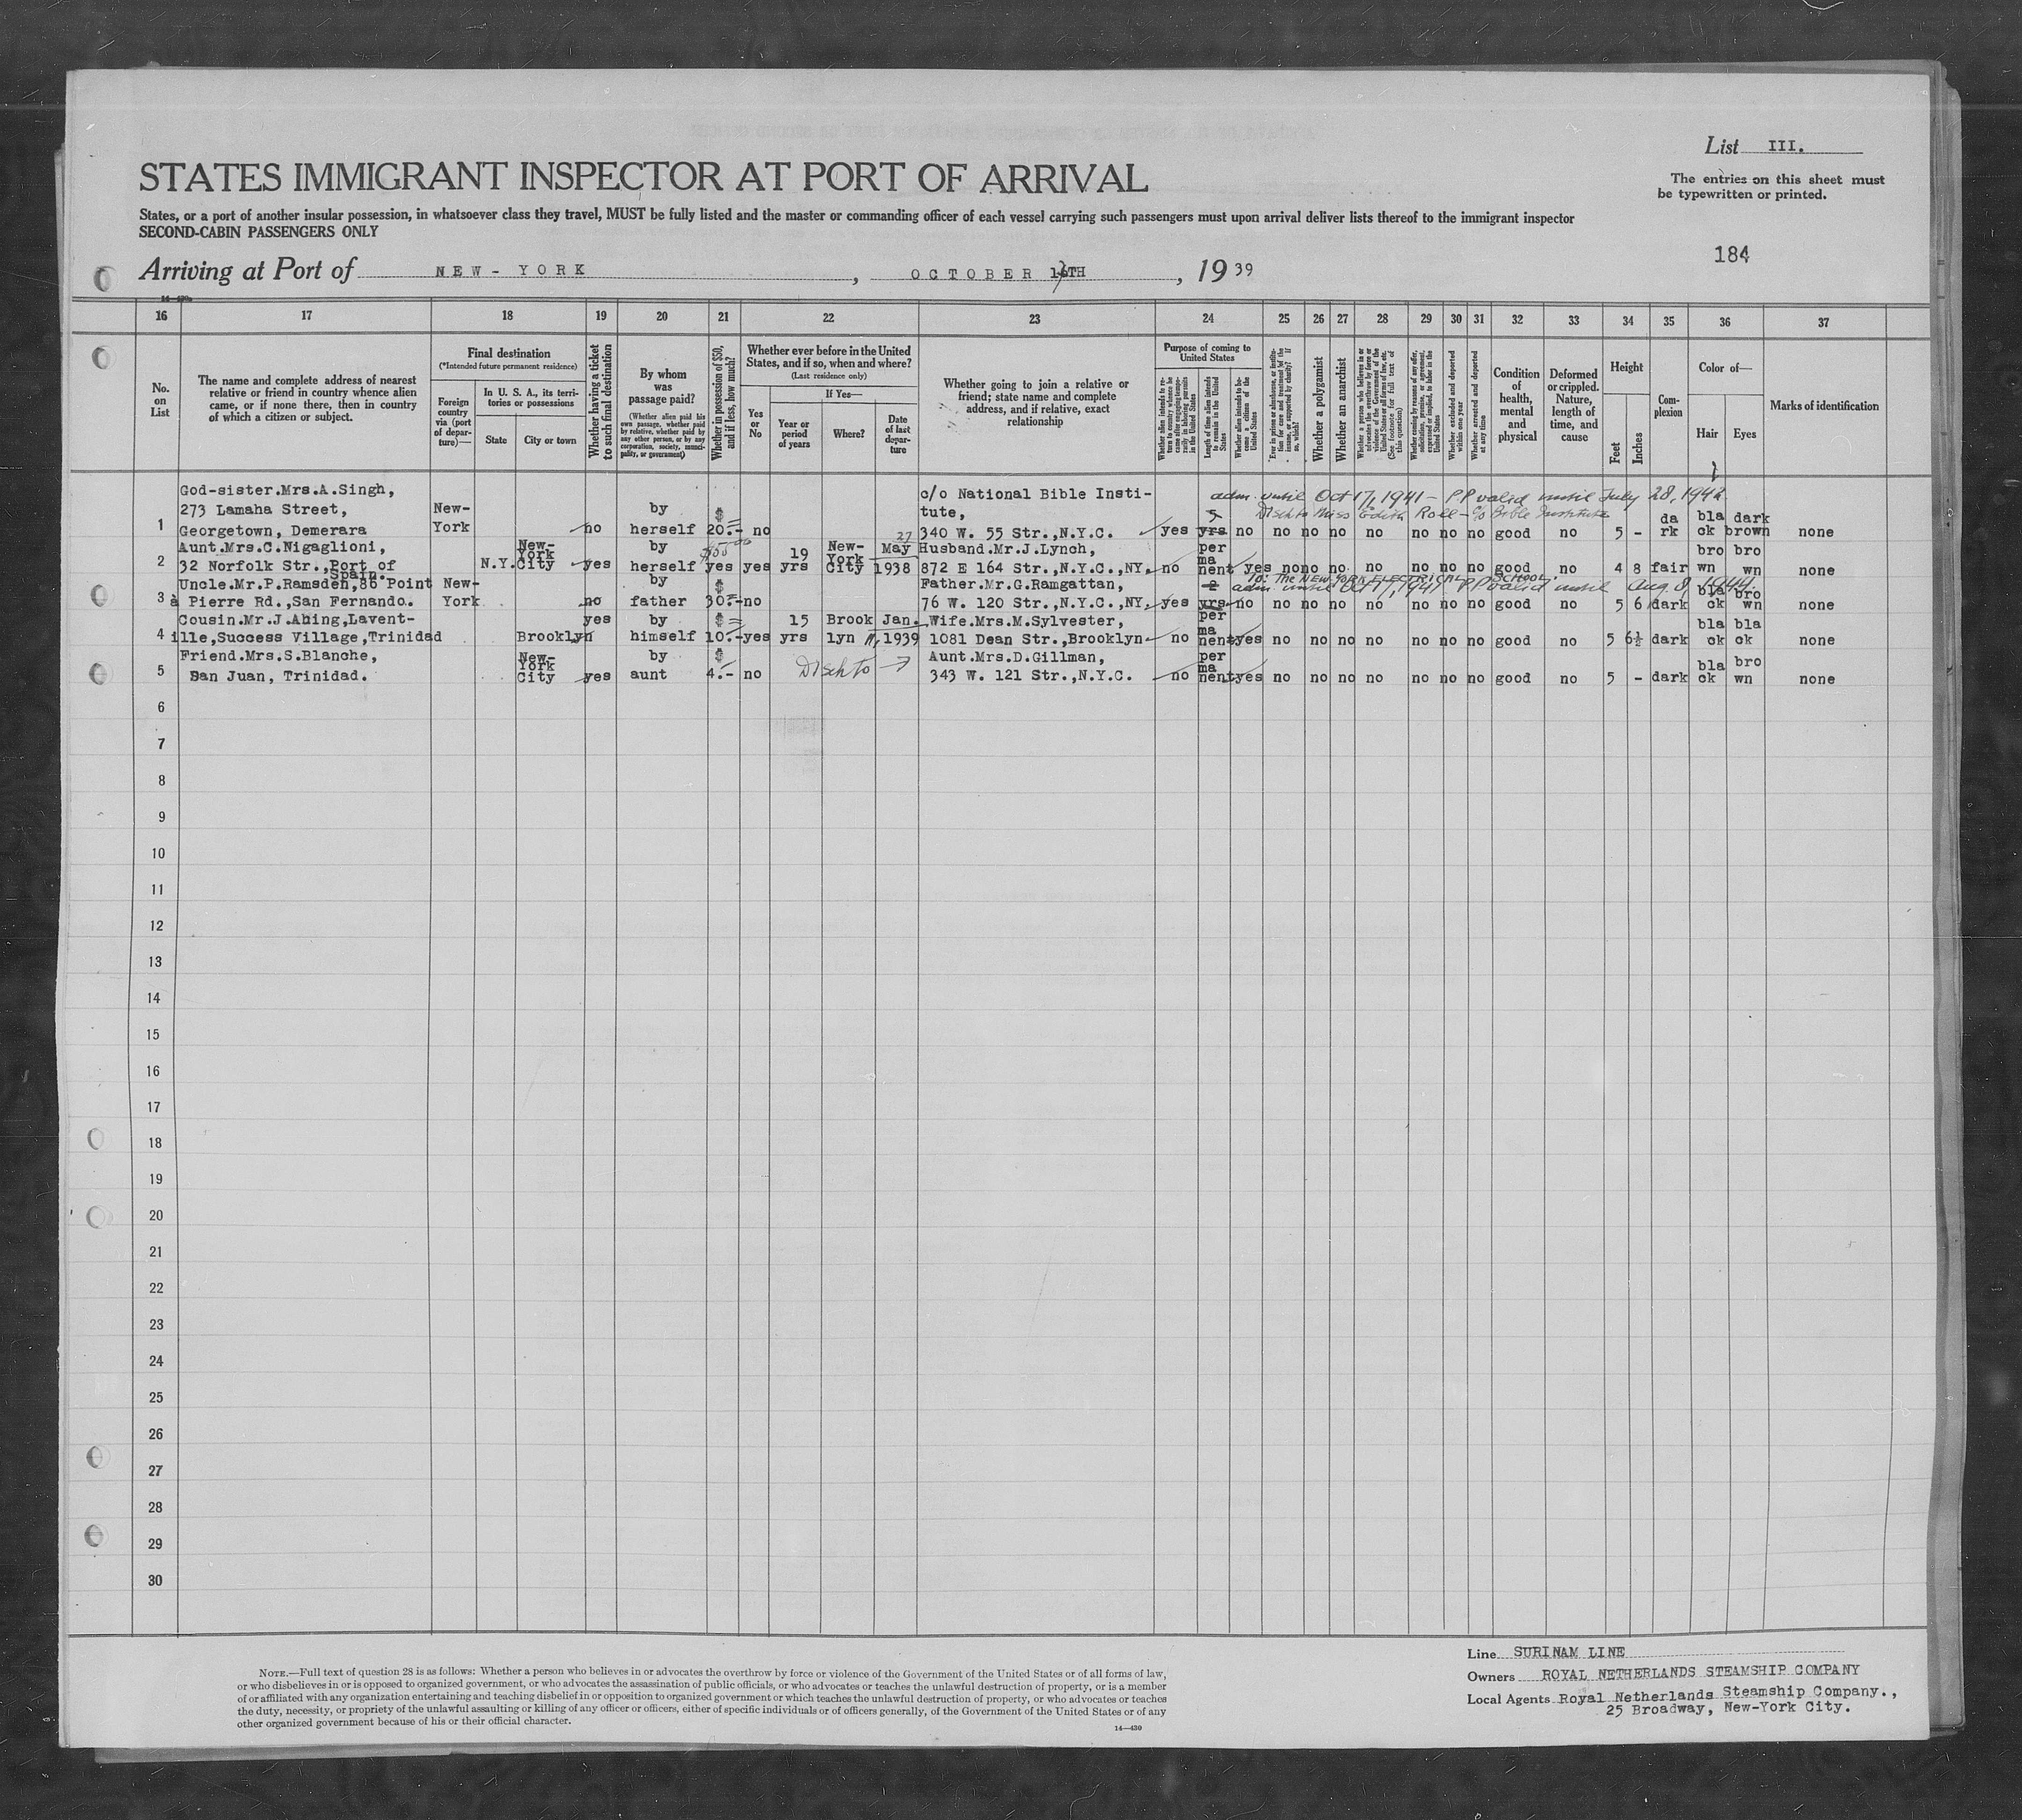 List III.
The entries on this sheet must
be typewritten or printed.
STATES IMMIGRANT INSPECTOR AT PORT OF ARRIVAL
States, or a port of another insular possession, in whatsoever class they travel, MUST be fully listed and the master or commanding officer of each vessel carrying such passengers must upon arrival deliver lists thereof to the immigrant inspector
SECOND-CABIN PASSENGERS ONLY
184
Arriving at Port of NEW-YORK, OCTOBER TH, 1939
16 17 18 19 20 21 22 23 24 25 26 27 28 29 30 31 32 33 34 35 36 37
No. on List
The name and complete address of nearest
relative or friend in country whence alien
came, or if none there, then in country
of which a citizen or subject.
Final destination
(*Intended future permanent residence)
Foreign country via (port of departure)—
In U. S. A., its territories or possessions
State
City or town
Whether having a ticket to such final destination
By whom was passage paid?
(Whether alien paid his own passage, whether paid by relative, whether paid by any other person, or by any corporation, society, municipality, or government)
Whether in possession of $50, and if less, how much?
Whether ever before in the United States, and if so, when and where?
(Last residence only)
Yes or No
If Yes—
Year or period of years
Where?
Date of last departure
Whether going to join a relative or
friend; state name and complete
address, and if relative, exact
relationship
Purpose of coming to United States
Length of time alien intends to remain in the United States
Whether alien intends to become a citizen of the United States
Whether a polygamist
Whether an anarchist
Whether arrested and deported at any time
Condition of health, mental and physical
Deformed or crippled. Nature, length of time, and cause
Height
Feet
Inches
Complexion
Color of—
Hair
Eyes
Marks of identification
adm. until Oct 17, 1941 – P.P valid until July 28, 1942
Disch to Miss Edith Roll – c/o Bible Institute
1 God-sister.Mrs.A.Singh,
273 Lamaha Street,
Georgetown, Demerara
New-York no by herself $20.- no
c/o National Bible Insti-
tute,
340 W. 55 Str.,N.Y.C.
yes 5 yrs no no no no no no no no good no 5 - da rk bla ck dark brown none
2 Aunt.Mrs.C.Nigaglioni,
32 Norfolk Str.,Port of
Spain.
N.Y. New-York City yes by herself yes yes 19 yrs New-York City 27 May 1938
Husband.Mr.J.Lynch,
872 E 164 Str.,N.Y.C.,NY.
no per ma nent yes no no no no no no no good no 4 8 fair bro wn bro wn none
To: The NEW YORK ELECTRICAL SCHOOL.
adm until Oct 17, 1941 P.P valid until Aug. 8, 1944.
3 Uncle.Mr.P.Ramsden,86 Point
à Pierre Rd.,San Fernando.
New-York no by father $30.- no
Father.Mr.G.Ramgattan,
76 W. 120 Str.,N.Y.C.,NY.
yes 2 yrs no no no no no no no no good no 5 6 dark bla ck bro wn none
4 Cousin.Mr.J.Ahing,Lavent-
ille,Success Village,Trinidad
Brooklyn yes by himself $10.- yes 15 yrs Brook lyn Jan. 11, 1939
Wife.Mrs.M.Sylvester,
1081 Dean Str.,Brooklyn
no per ma nent yes no no no no no no no good no 5 6½ dark bla ck bla ck none
5 Friend.Mrs.S.Blanche,
San Juan, Trinidad.
New-York City yes by aunt $4.- no Disch to →
Aunt.Mrs.D.Gillman,
343 W. 121 Str.,N.Y.C.
no per ma nent yes no no no no no no no good no 5 - dark bla ck bro wn none
6
7
8
9
10
11
12
13
14
15
16
17
18
19
20
21
22
23
24
25
26
27
28
29
30
NOTE.—Full text of question 28 is as follows: Whether a person who believes in or advocates the overthrow by force or violence of the Government of the United States or of all forms of law,
or who disbelieves in or is opposed to organized government, or who advocates the assassination of public officials, or who advocates or teaches the unlawful destruction of property, or is a member
of or affiliated with any organization entertaining and teaching disbelief in or opposition to organized government or which teaches the unlawful destruction of property, or who advocates or teaches
the duty, necessity, or propriety of the unlawful assaulting or killing of any officer or officers, either of specific individuals or of officers generally, of the Government of the United States or of any
other organized government because of his or their official character.
14—430
Line SURINAM LINE
Owners ROYAL NETHERLANDS STEAMSHIP COMPANY
Local Agents Royal Netherlands Steamship Company.,
25 Broadway, New-York City.